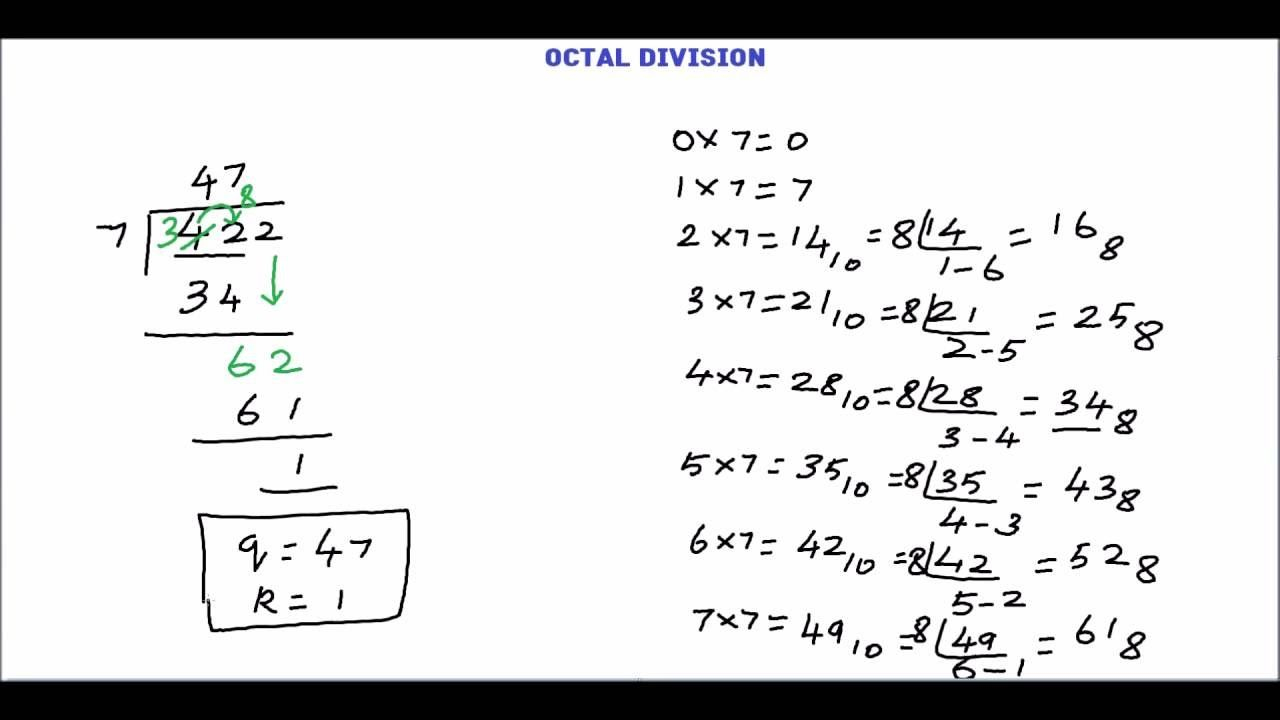 OCTAL DIVISION
47
8
7 3422
34
62
61
1
q = 47
R = 1
0 x 7 = 0
1 x 7 = 7
2 x 7 = 14₁₀ = 8 14 = 16₈
1 - 6
3 x 7 = 21₁₀ = 8 21 = 25₈
2 - 5
4 x 7 = 28₁₀ = 8 28 = 34₈
3 - 4
5 x 7 = 35₁₀ = 8 35 = 43₈
4 - 3
6 x 7 = 42₁₀ = 8 42 = 52₈
5 - 2
7 x 7 = 49₁₀ = 8 49 = 61₈
6 - 1